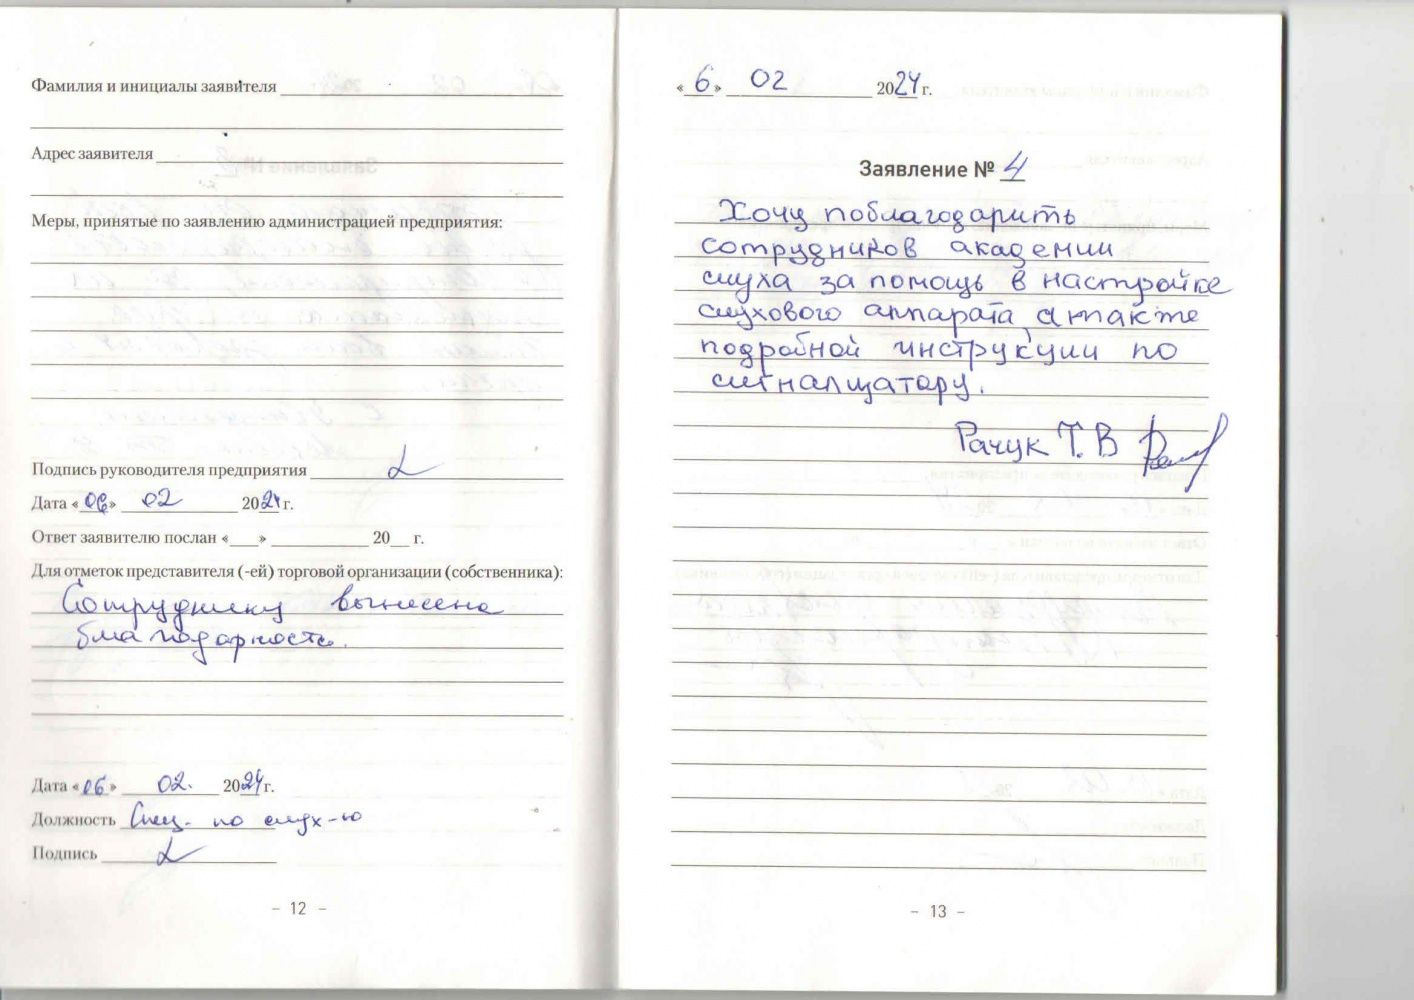 Фамилия и инициалы заявителя
Адрес заявителя
Меры, принятые по заявлению администрацией предприятия:
Подпись руководителя предприятия
Дата «06» 02 2024 г.
Ответ заявителю послан «   »        20   г.
Для отметок представителя (-ей) торговой организации (собственника):
Сотруднику вынесена
благодарность.
Дата «06» 02. 2024 г.
Должность Спец. по слух-ю
Подпись
- 12 -
«6» 02 2024 г.
Заявление № 4
Хочу поблагодарить
сотрудников академии
слуха за помощь в настройке
слухового аппарата, а также
подробной инструкции по
сигнализатору.
Рачук Т.В
- 13 -